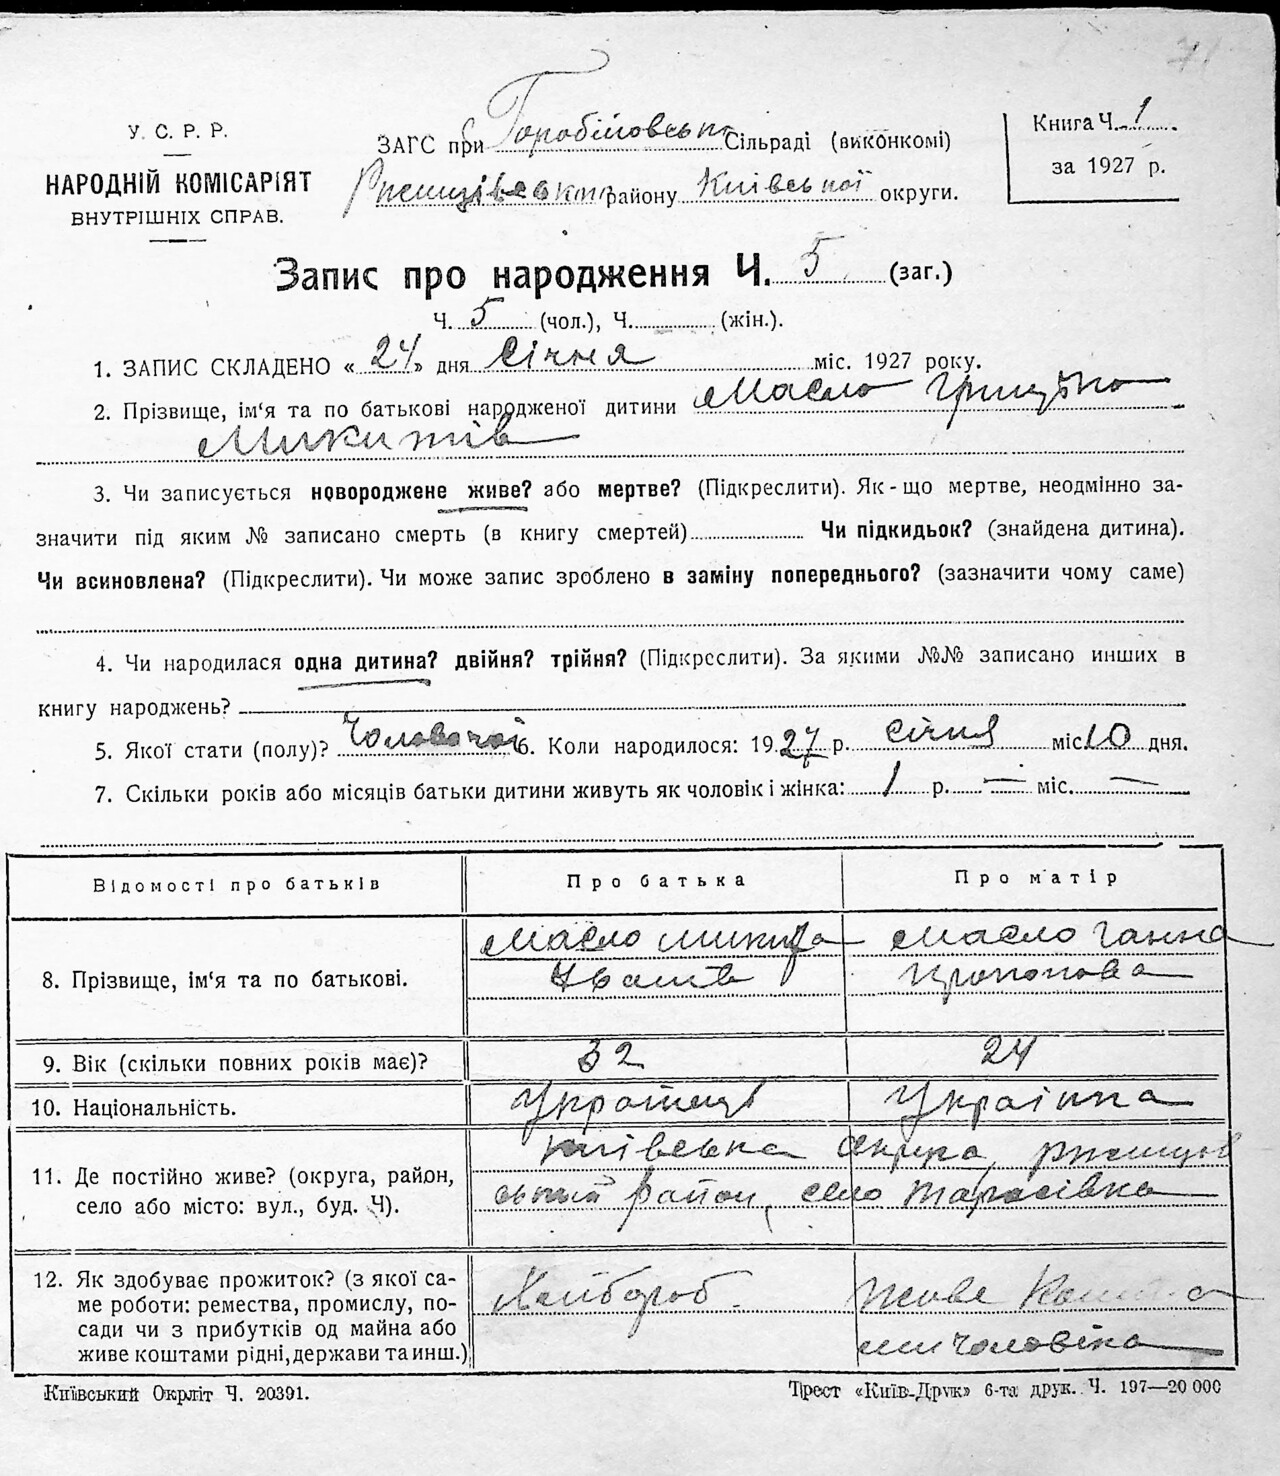 71
У. С. Р. Р.
НАРОДНІЙ КОМІСАРІЯТ
ВНУТРІШНІХ СПРАВ.
ЗАГС при Горобіївські Сільраді (виконкомі)
Ржищівськім району Київської округи.
Книга Ч. 1
за 1927 р.
Запис про народження Ч. 5 (заг.)
Ч. 5 (чол.), Ч. (жін.).
1. ЗАПИС СКЛАДЕНО « 24 » дня Січня міс. 1927 року.
2. Прізвище, ім‘я та по батькові народженої дитини Масло Грицько
Микитів
3. Чи записується новороджене живе? або мертве? (Підкреслити). Як-що мертве, неодмінно за-
значити під яким № записано смерть (в книгу смертей) Чи підкидьок? (знайдена дитина).
Чи всиновлена? (Підкреслити). Чи може запис зроблено в заміну попереднього? (зазначити чому саме)
4. Чи народилася одна дитина? двійня? трійня? (Підкреслити). За якими №№ записано инших в
книгу народжень?
5. Якої стати (полу)? Чоловочої 6. Коли народилося: 1927 р. січня міс. 10 дня.
7. Скільки років або місяців батьки дитини живуть як чоловік і жінка: 1 р. — міс. —
Відомості про батьків Про батька Про матір
8. Прізвище, ім‘я та по батькові. Масло Микита Масло Ганна
Іванів Прокопова
9. Вік (скільки повних років має)? 32 24
10. Національність. Українець Українка
11. Де постійно живе? (округа, район,
село або місто: вул., буд. Ч).
Київська округа, Ржищів
ський район, село Тарасівка
12. Як здобуває прожиток? (з якої са-
ме роботи: ремества, промислу, по-
сади чи з прибутків од майна або
живе коштами рідні, держави та инш.)
Хлібороб. живе Кошта
ми чоловіка
Київський Окрліт Ч. 20391.
Трест «Київ-Друк» 6-та друк. Ч. 197—20 000